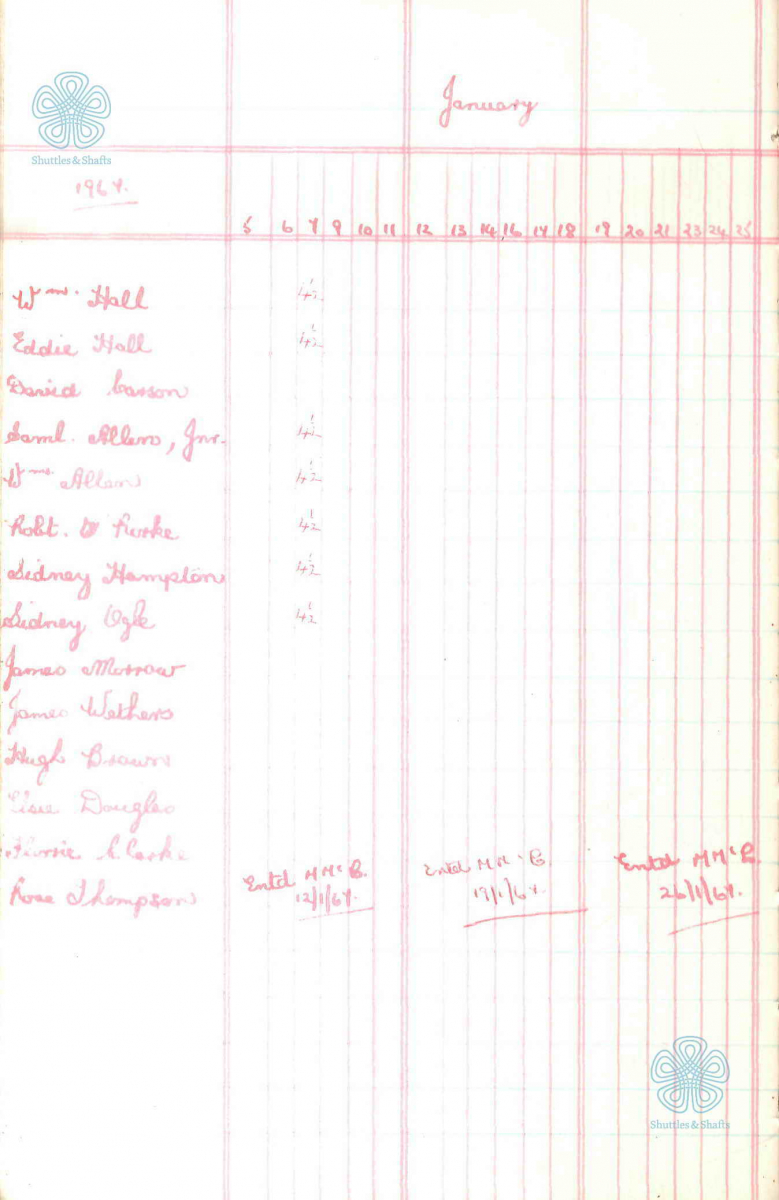 Shuttles & Shafts
January
1967.
5 6 7 9 10 11 12 13 14 16 17 18 19 20 21 23 24 25
Wm. Hall 4½
Eddie Hall 4½
David Carson
Saml. Allen, Jnr. 4½
Wm Allen 4½
Robt. Rorke 4½
Sidney Hampton 4½
Sidney Ogle 4½
James Morrow
James Wethers
Hugh Brown
Elsie Douglas
Florrie Clarke
Rose Thompson
Entd MMcC. Entd MMcC. Entd MMcC.
12/1/67. 19/1/67. 26/1/67.
Shuttles & Shafts